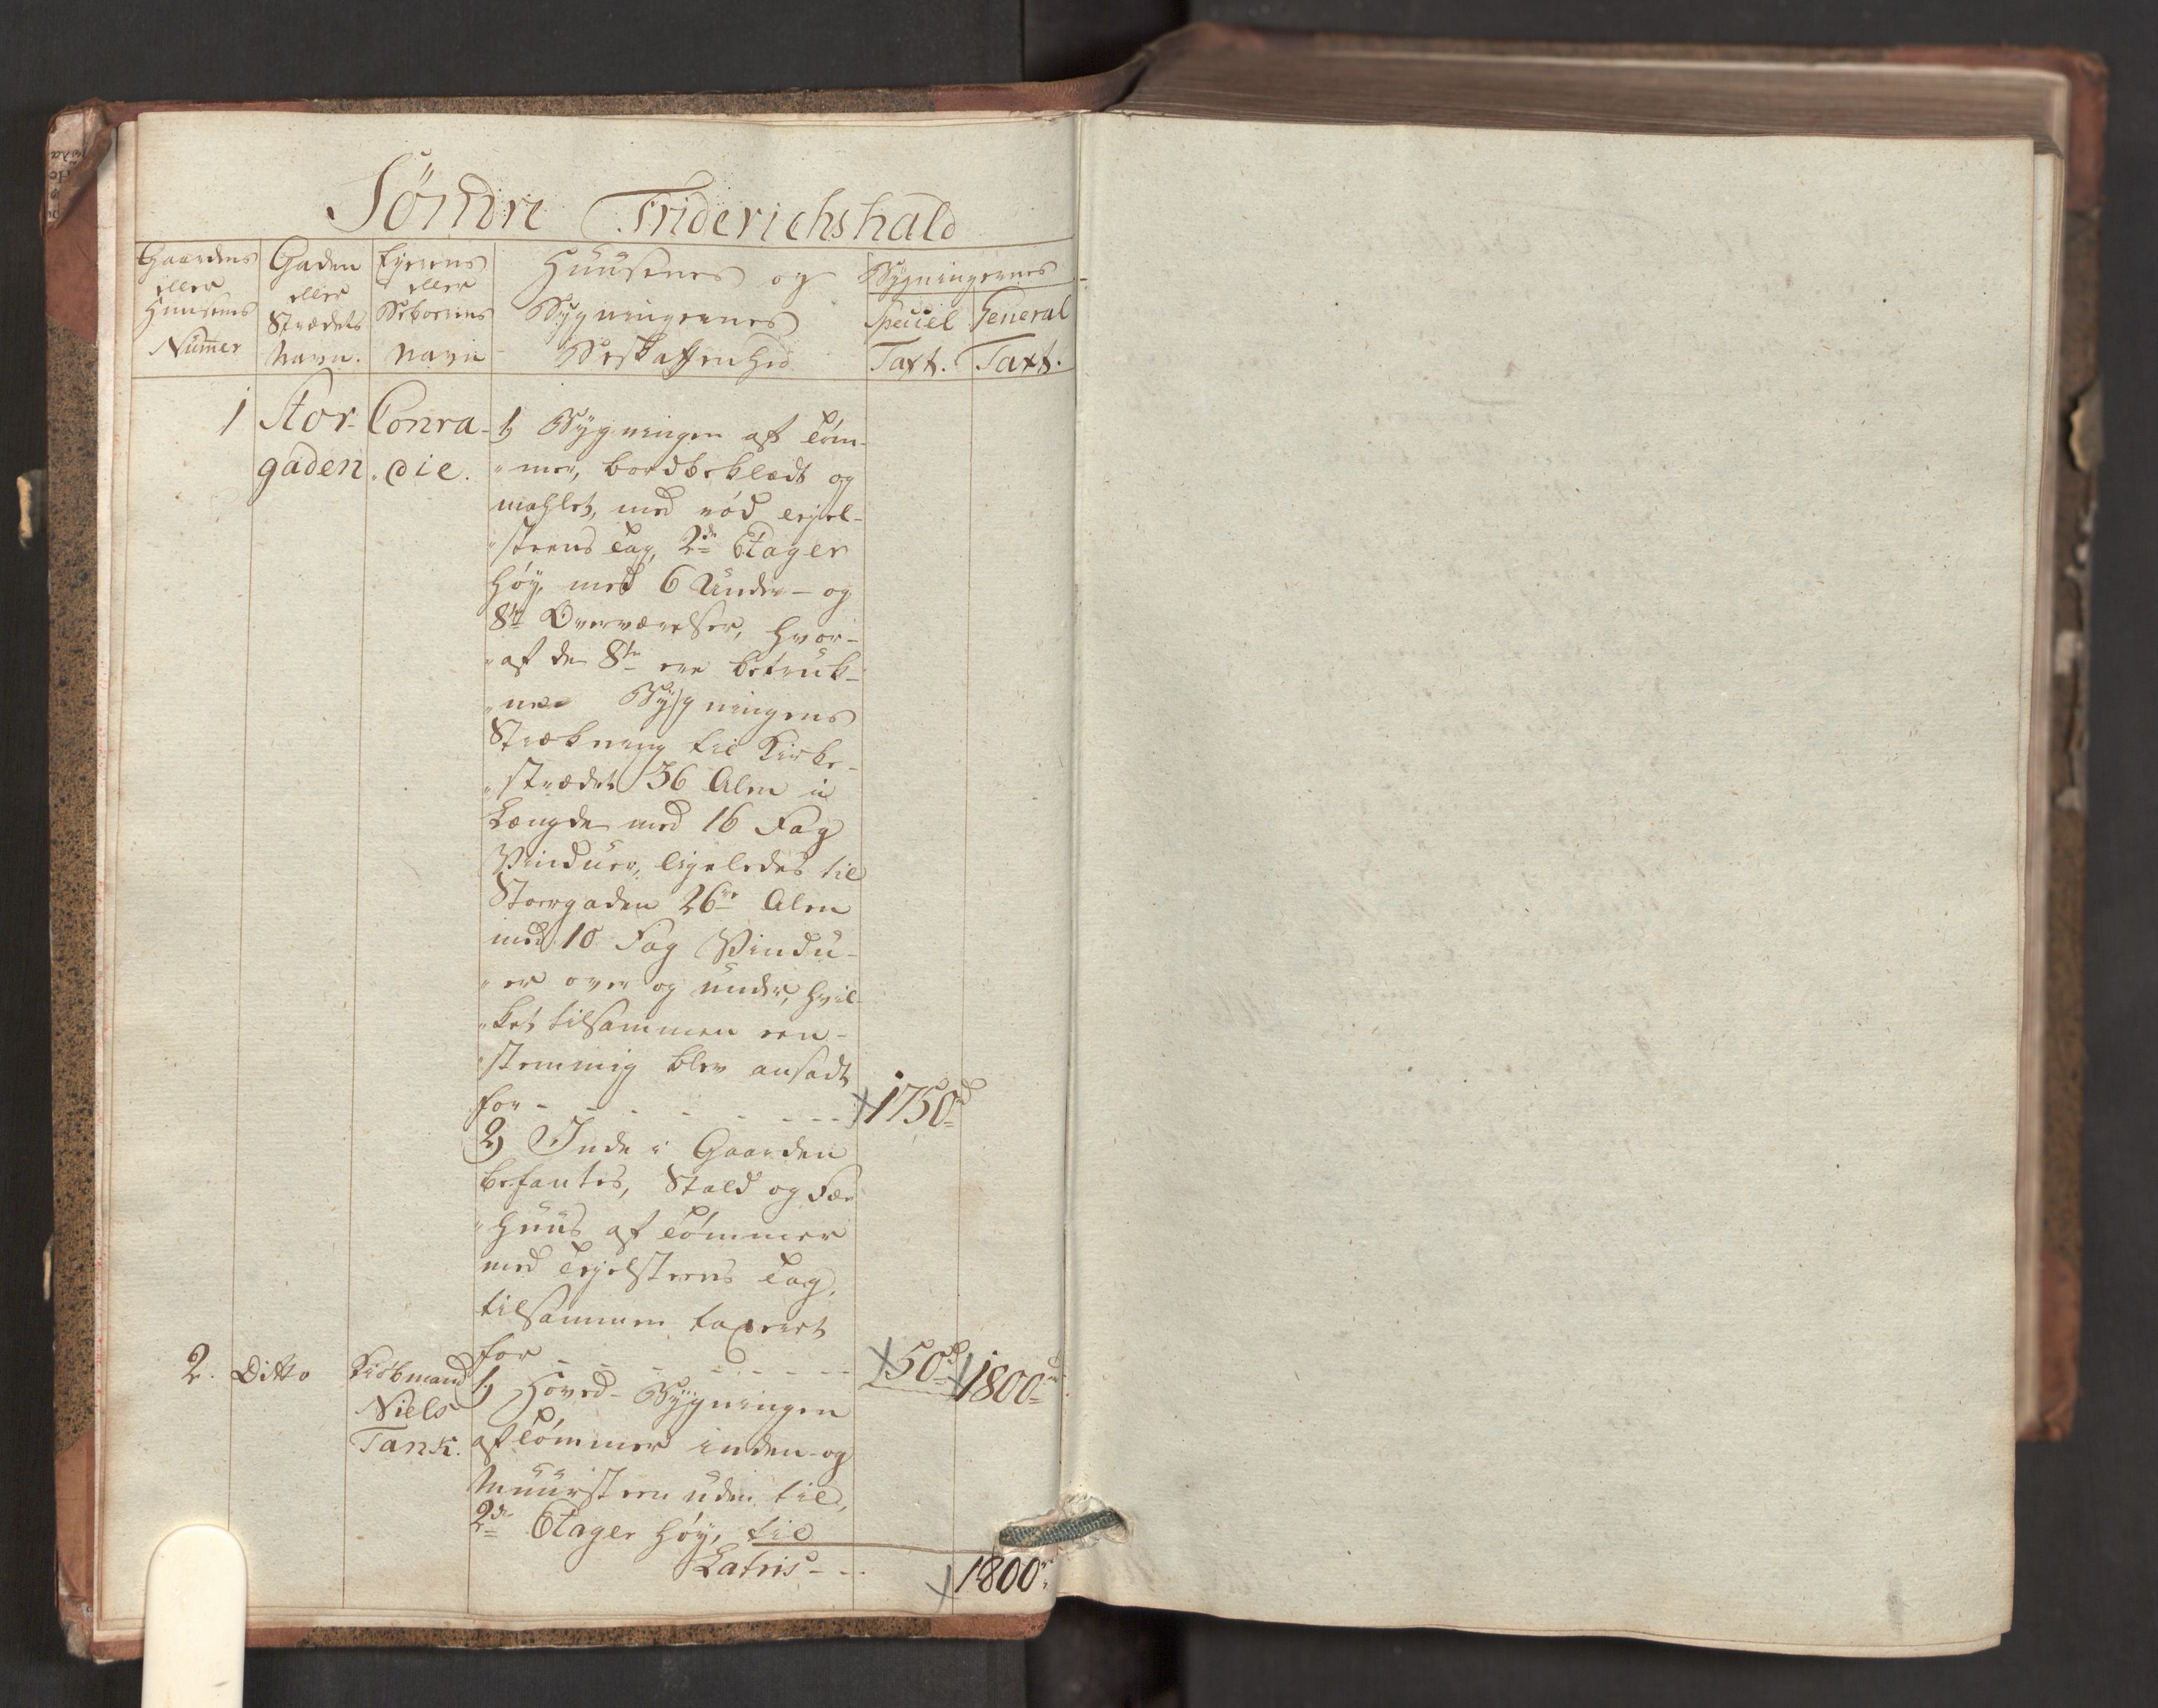 Söndre Friderichshald
Gaardens eller Huusenes Numer
Gaden eller Strædets Navn.
Eyerens eller Beboerens Navn
Huusenes og Bygningernes Beskaffenhed
Bygningernes
Speciel Taxt.
General Taxt.
1
Stor-
gaden.
Conra-
die.
1) Bygningen af Töm-
mer, bordbeklædt og
mahlet, med röd tejel-
steens Tag, 2de Etager
höy, med 6 Under- og
8te Overværelser, hvor-
af de 8te ere betruk-
ne. Bygningens
Strækning til Kirke-
strædet 36 Alen i
Længde med 16 Fag
Vinduer, ligeledes til
Storgaden 26 Alen
med 10 Fag Vindu-
er over og under, hvil-
ket tilsammen een-
stemmig blev ansadt
for - - - - - - - 1750
2) Inde i Gaarden
befantes, Stald og Fæe
huus af Tömmer
med Tejelsteens Tag,
tilsammen taxeret
for - - - - - - - 50 1800
2.
Ditto
Kiöbmand
Niels
Tank.
1) Hoved-Bygningen
af Tömmer inden- og
Muursteen uden til,
2de Etager höy, til
Latris - - . 1800